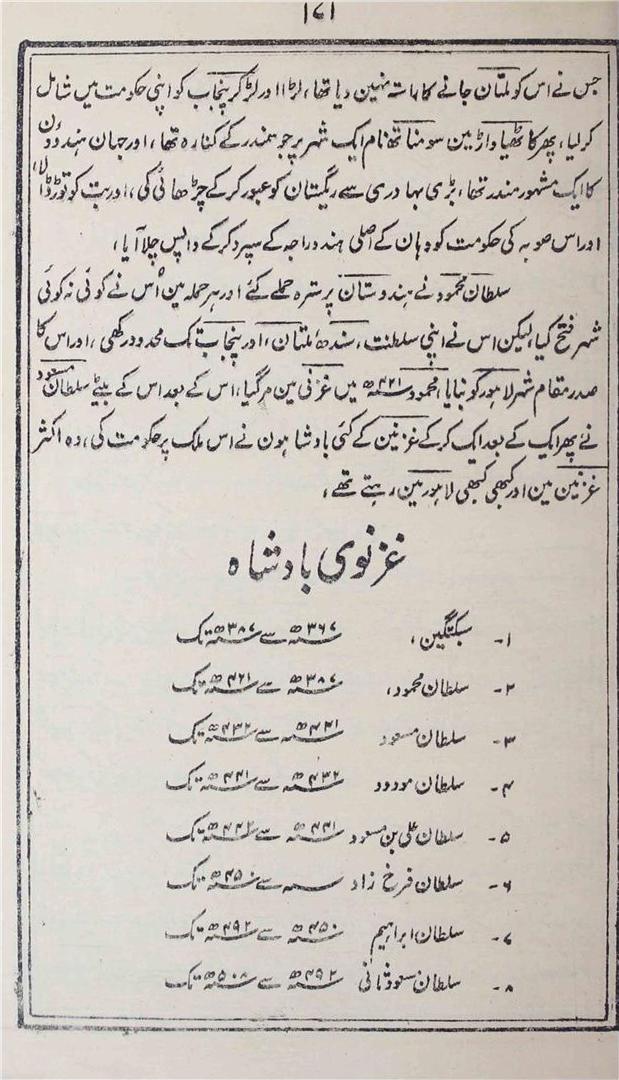 ۱۷۱
جس نے اس کو ملتان جانے کا راستہ نہین دیا تھا، لڑا اور لڑ کر پنجاب کو اپنی حکومت میں شامل
کر لیا، پھر کاٹھیاواڑ مین سومناتھ نام ایک شہر پر جو سمندر کے کنارہ تھا، اور جہان ہندوون
کا ایک مشہور مندر تھا، بڑی بہادری سے ریگستان کو عبور کر کے چڑھائی کی، اور بت کو توڑ ڈالا،
اور اس صوبہ کی حکومت کو وہان کے اصلی ہندو راجہ کے سپرد کر کے واپس چلا آیا،
سلطان محمود نے ہندوستان پر سترہ حملے کئے اور ہر حملہ مین اُس نے کوئی نہ کوئی
شہر فتح کیا، لیکن اس نے اپنی سلطنت، سندھ، ملتان، اور پنجاب تک محدود رکھی، اور اس کا
صدر مقام شہر لاہور کو بنایا، محمود ۴۲۱ھ میں غزنی مین مر گیا، اس کے بعد اس کے بیٹے سلطان مسعود
نے پھر ایک کے بعد ایک کر کے غزنین کے کئی بادشاہون نے اس ملک پر حکومت کی، وہ اکثر
غزنین مین اور کبھی کبھی لاہور مین رہتے تھے،
غزنوی بادشاہ
۱- سبکتگین، ۳۶۷ھ سے ۳۸۷ھ تک
۲- سلطان محمود، ۳۸۷ھ سے ۴۲۱ھ تک
۳- سلطان مسعود ۴۲۱ھ سے ۴۳۲ھ تک
۴- سلطان مودود ۴۳۲ھ سے ۴۴۱ھ تک
۵- سلطان علی بن مسعود ۴۴۱ھ سے ۴۴۳ھ تک
۶- سلطان فرخ زاد سنہ سے ۴۵۰ھ تک
۷- سلطان ابراہیم ۴۵۰ھ سے ۴۹۲ھ تک
۸- سلطان مسعود ثانی ۴۹۲ھ سے ۵۰۸ھ تک